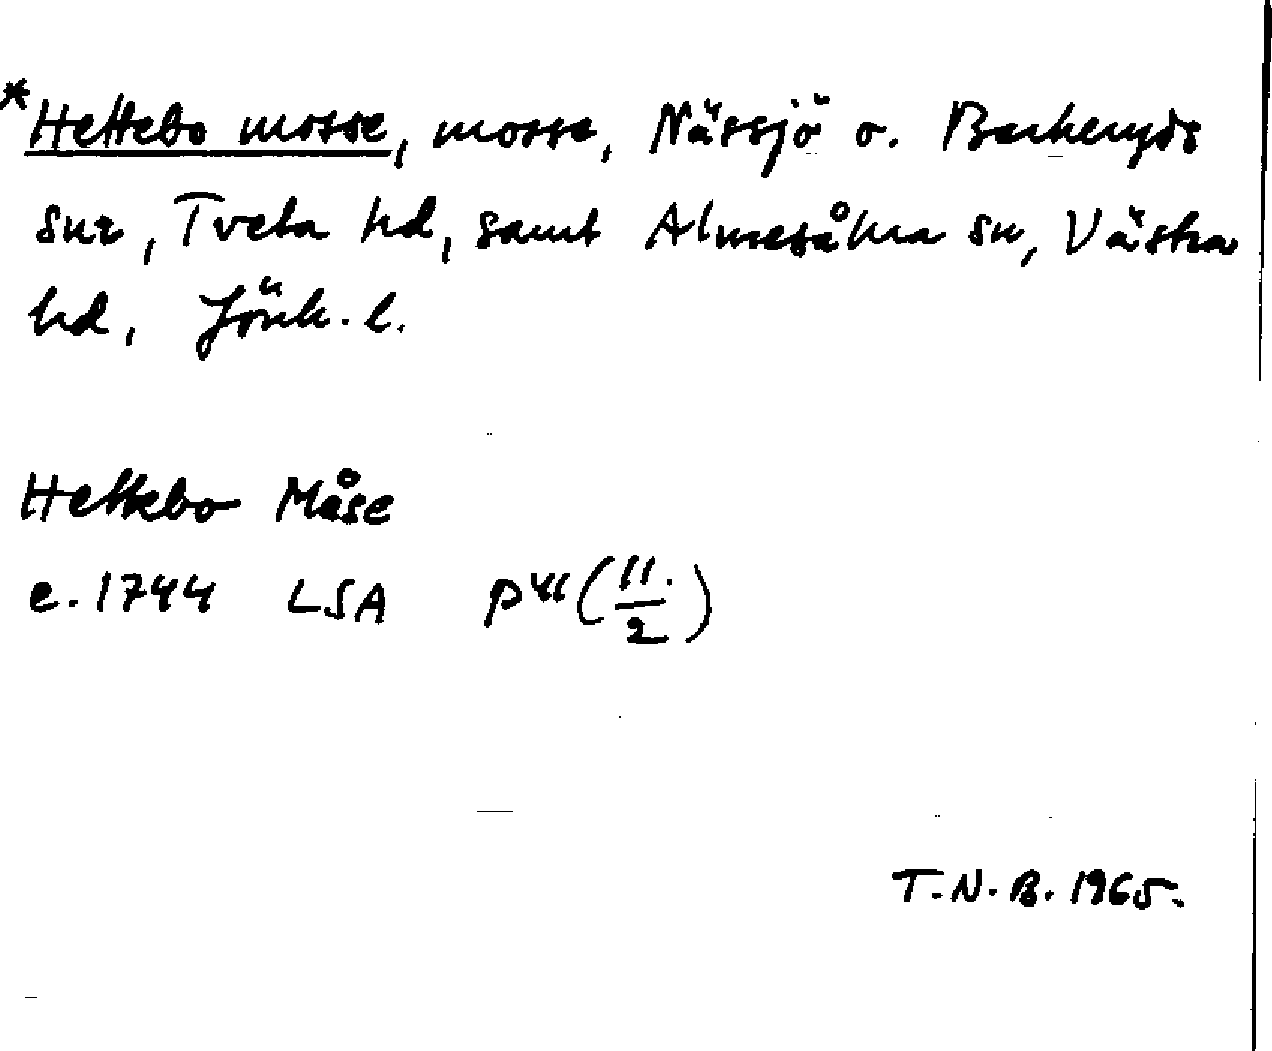 *Hettebo mosse, mosse, Nässjö o. Barkeryds
snr, Tveta hd, samt Almesåkra sn, Västra
hd, Jönk. l.
Hettebo Måse
c. 1744 LSA P⁴⁴(11./2)
T.N.B. 1965.